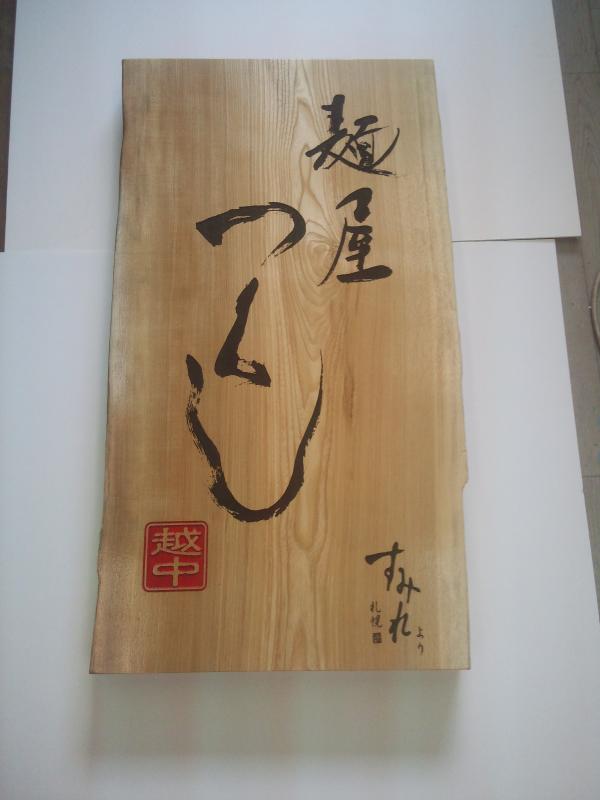 麺屋
つくし
越中
すみれ
札幌
より